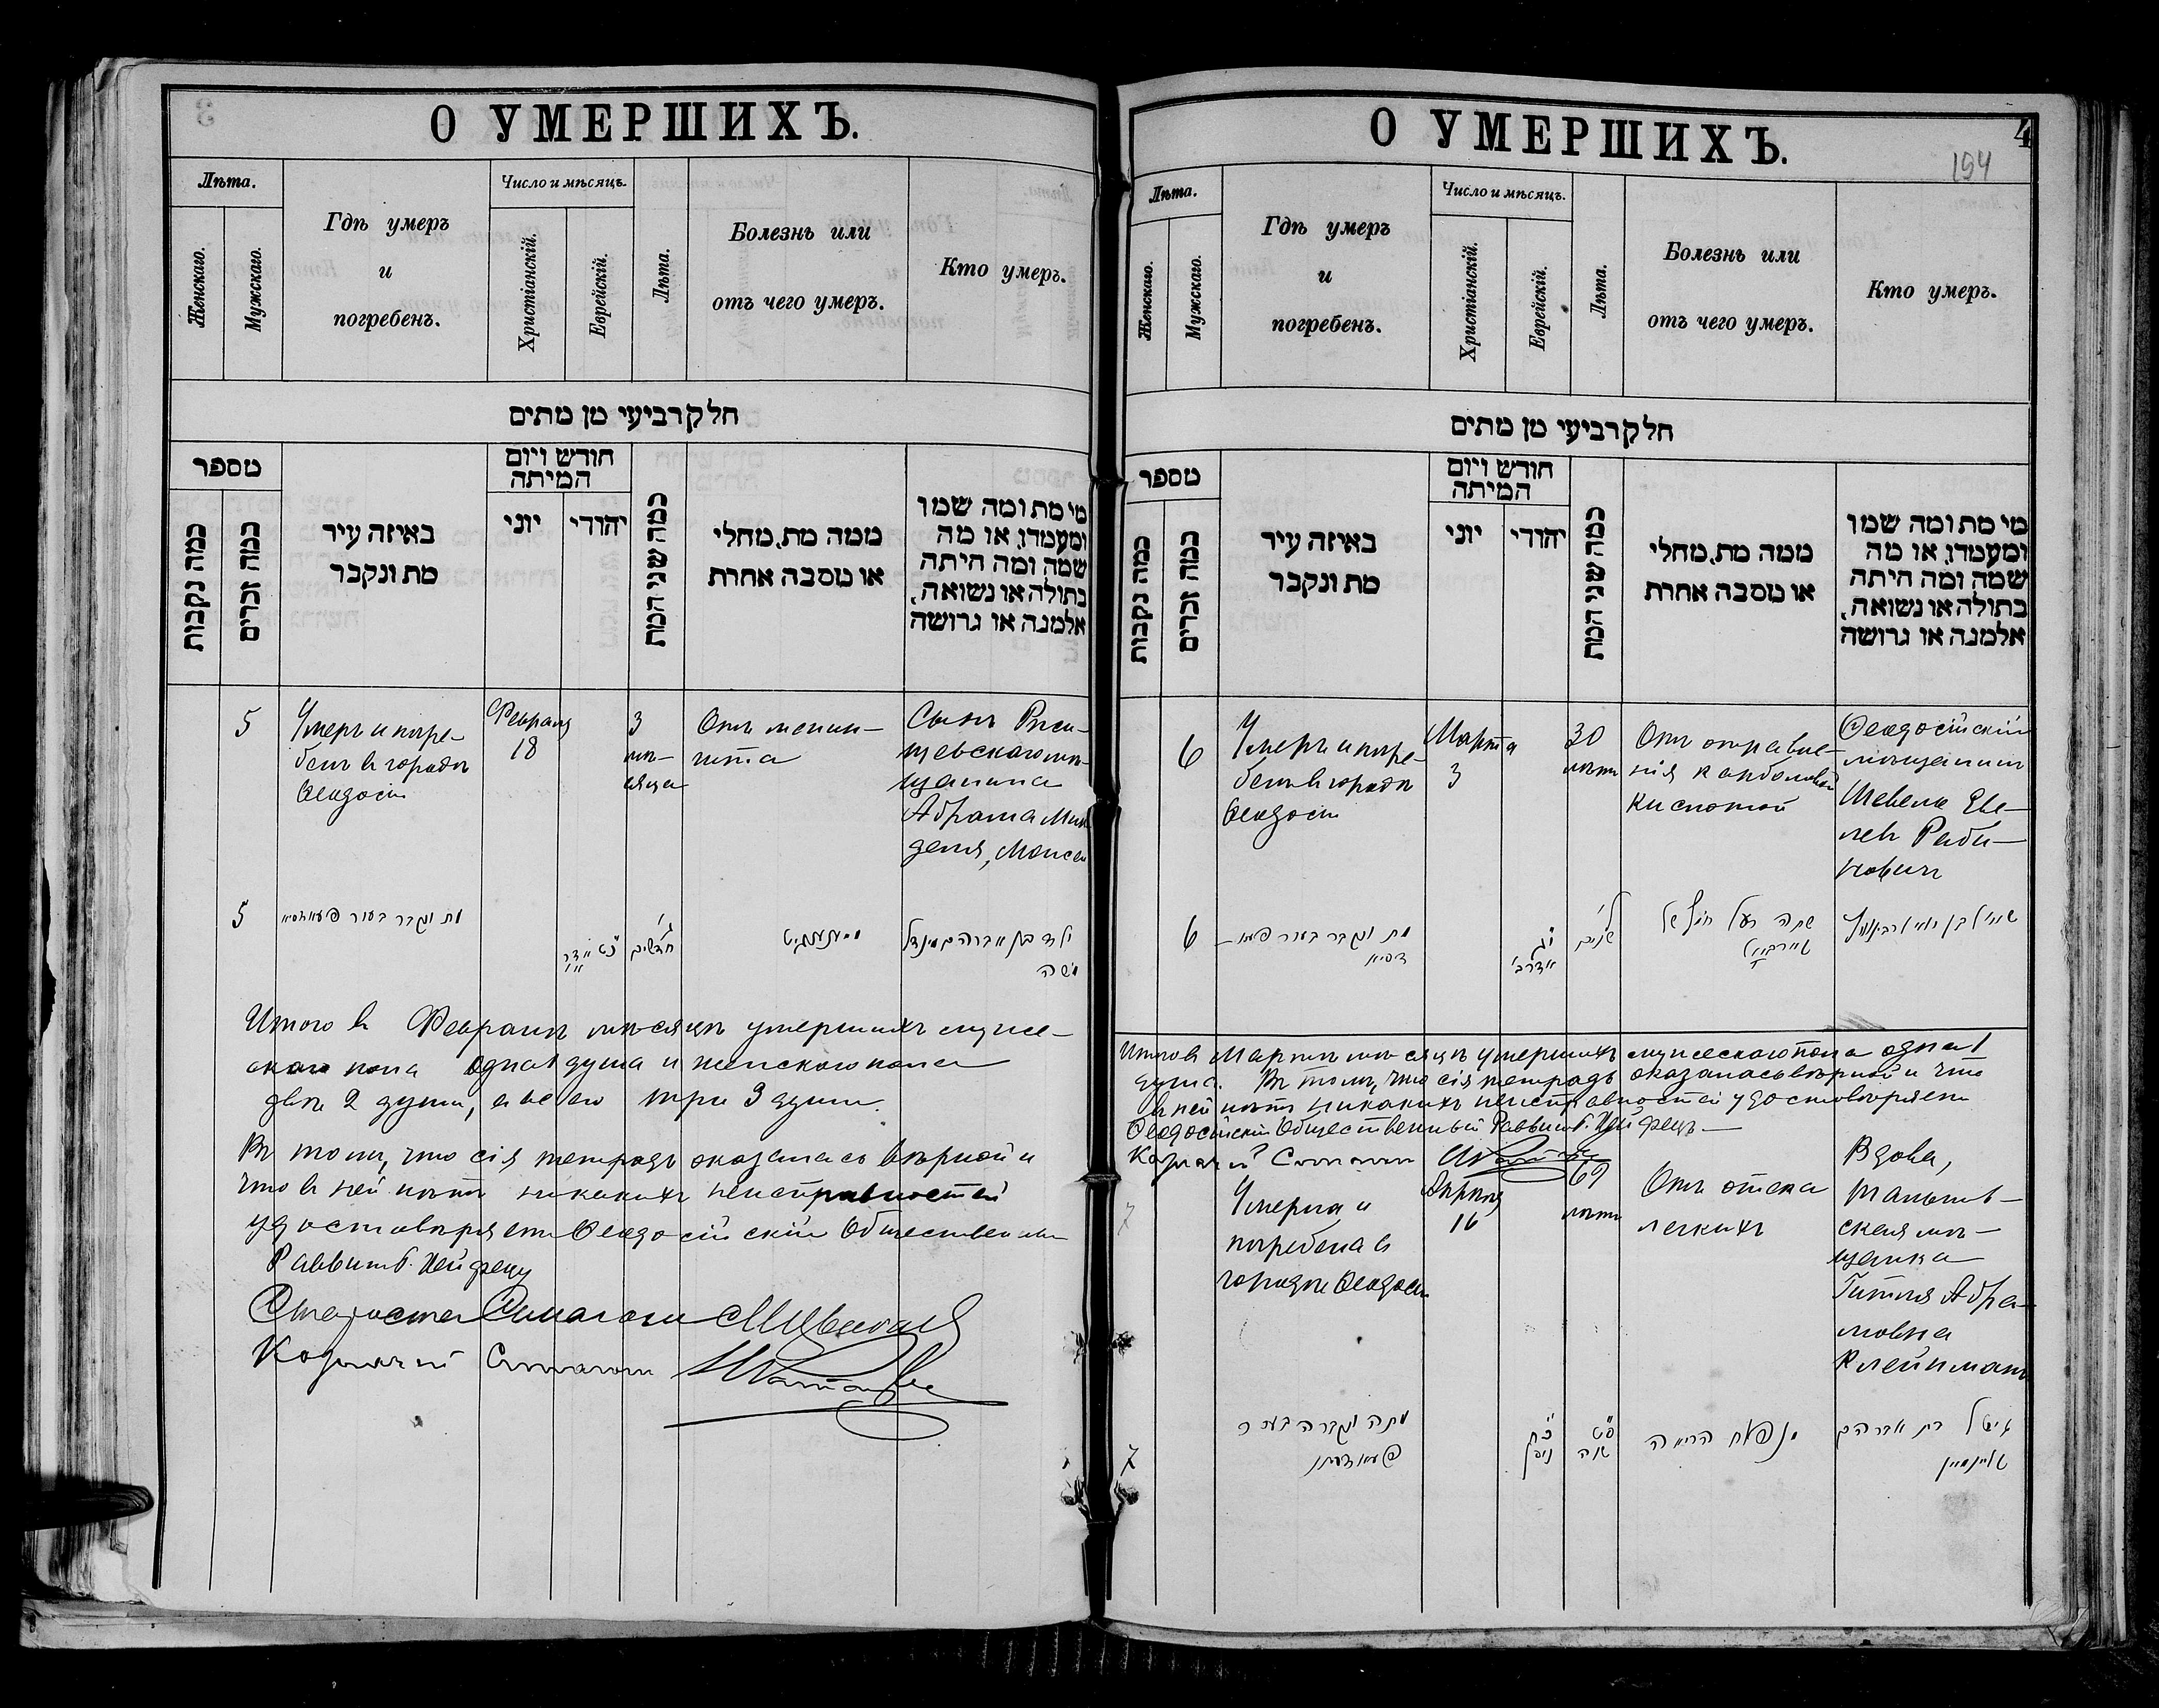 О УМЕРШИХЪ.
Лѣта.
Женскаго.
Мужскаго.
Гдѣ умеръ
и
погребенъ.
Число и мѣсяцъ.
Христіанскій.
Еврейскій.
Лѣта.
Болезнь или
отъ чего умеръ.
Кто умеръ.
חלק רביעי מן מתים
מספר
כמה נקבות
כמה זכרים
באיזה עיר
מת ונקבר
חודש ויום
המיתה
יוני
יהודי
כמה שני המת
ממה מת, מחלי
או מסבה אחרת
מי מת ומה שמו
ומעמדו, או מה
שמה ומה היתה
בתולה או נשואה,
אלמנה או גרושה
5
Умеръ и погре-
бенъ в городѣ
Ѳеодосіи
Февраля
18
3
мѣ-
сяца
Отъ менин-
гита
Сынъ
мѣ-
щанина
Абрама
Моисей
5
מת ונקבר בעיר
ג׳
חדשים
ילד בן אברהם מינדל
משה
Итого въ Февралѣ мѣсяцѣ умершихъ муже-
скаго пола одна 1 душа и женскаго пола
двѣ 2 души, а всего три 3 души.
Въ томъ, что сія тетрадь оказалась вѣрной и
что в ней нѣтъ никакихъ неисправностей
удостовѣряетъ Ѳеодосійскій Общественный
Раввинъ
Староста Синагоги
Казначей Синагоги
О УМЕРШИХЪ.
4
194
Лѣта.
Женскаго.
Мужскаго.
Гдѣ умеръ
и
погребенъ.
Число и мѣсяцъ.
Христіанскій.
Еврейскій.
Лѣта.
Болезнь или
отъ чего умеръ.
Кто умеръ.
חלק רביעי מן מתים
מספר
כמה נקבות
כמה זכרים
באיזה עיר
מת ונקבר
חודש ויום
המיתה
יוני
יהודי
כמה שני המת
ממה מת, מחלי
או מסבה אחרת
מי מת ומה שמו
ומעמדו, או מה
שמה ומה היתה
בתולה או נשואה,
אלמנה או גרושה
6
Умеръ и погре-
бенъ в городѣ
Ѳеодосіи
Марта
3
30
лѣтъ
Отъ отравле-
нія карболовой
кислотой
Ѳеодосійскій
мѣщанинъ
Шевель
Раби-
новичъ
6
מת ונקבר בעיר
ל׳
שנים
Итого въ Мартѣ мѣсяцѣ умершихъ мужескаго пола одна 1
душа. Въ томъ, что сія тетрадь оказалась вѣрной и что
в ней нѣтъ никакихъ неисправностей удостовѣряетъ
Ѳеодосійскій Общественный Раввинъ
Казначей Синагоги
7
Умерла и
погребена в
городѣ Ѳеодосіи
Апрѣля
16
69
лѣтъ
Отъ отека
легкихъ
Вдова,
мѣ-
щанка
Гитля Абра-
мовна
Клейнманъ
7
מתה ונקברה בעיר
גיטל בת אברהם